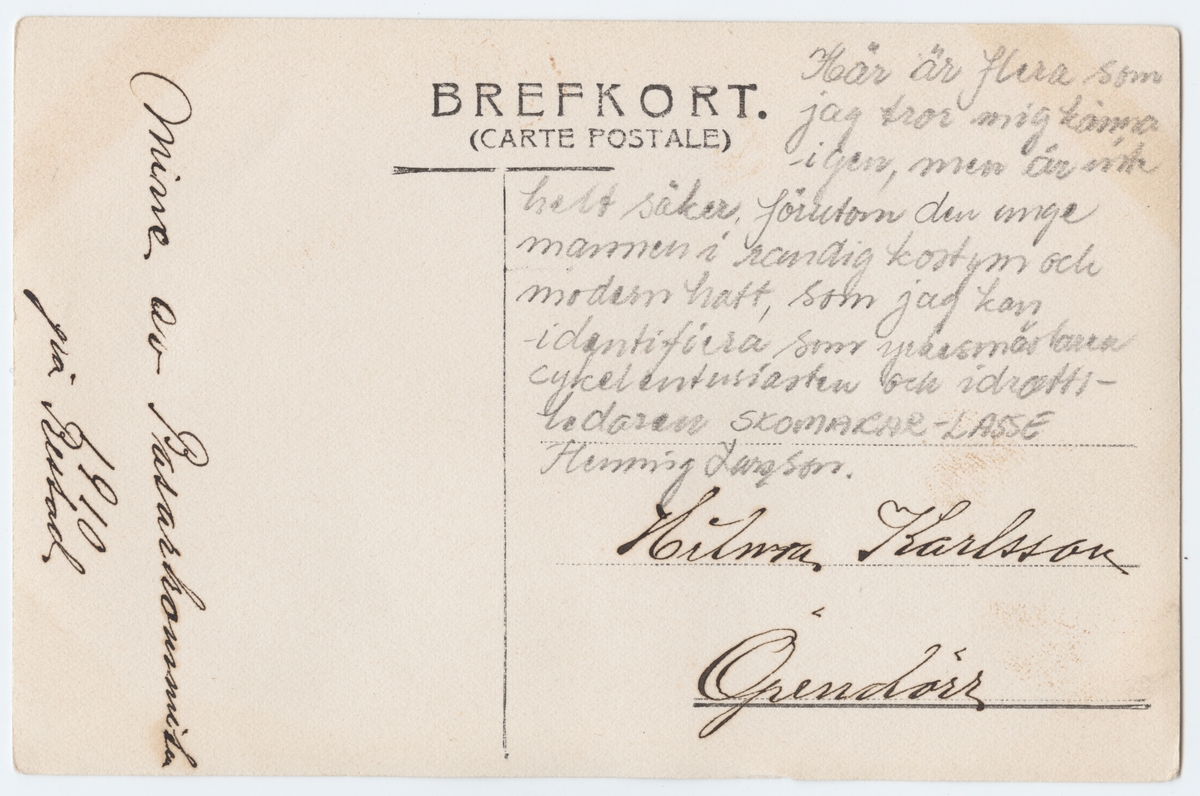 BREFKORT.
(CARTE POSTALE)
Här är flera som
jag tror mig känna
-igen, men är inte
helt säker, förutom den unge
mannen i randig kostym och
modern hatt, som jag kan
-identifiera som yrkesmästaren
cykelentusiasten och idrotts-
ledaren SKOMAKAR-LASSE
Henning Larsson.
Hilma Karlsson
Öpendörr
Minne av Basarkommiten
på Restad
1910